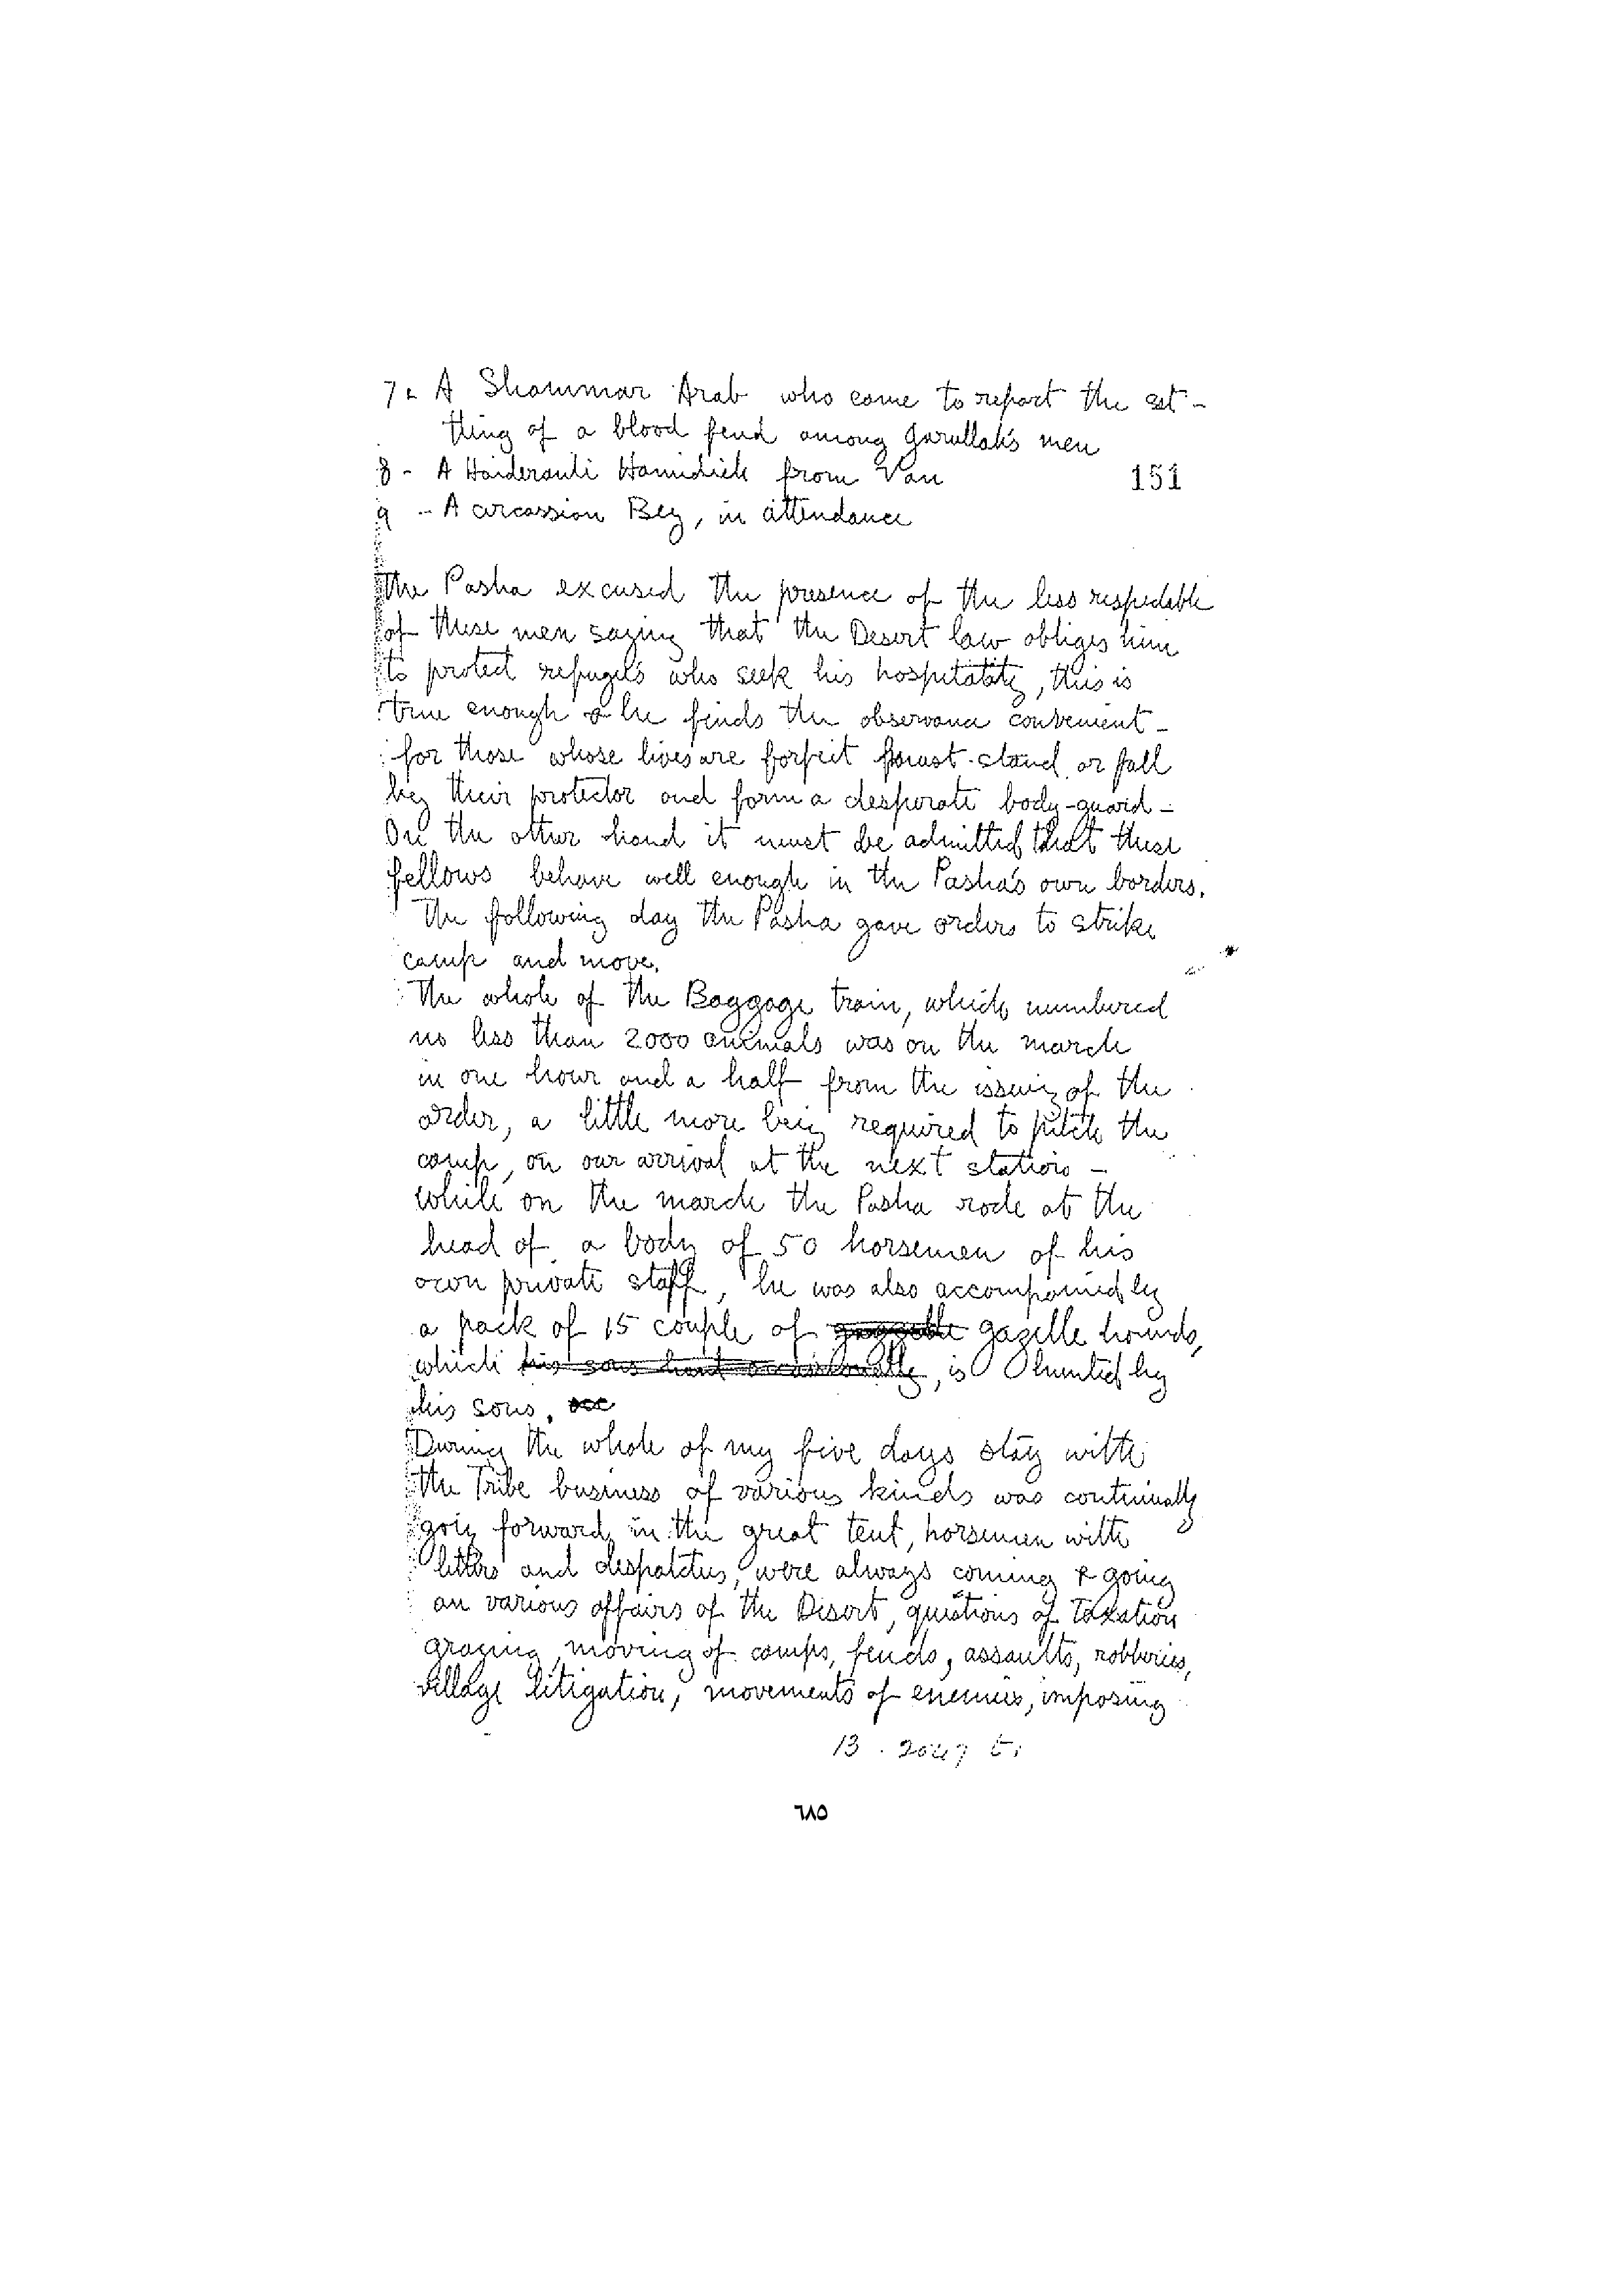 7 - A Shammar Arab who came to report the set-
tling of a blood feud among Garullah's men
8 - A Haideranli Hamidieh from Van
151
9 - A circassion Bey, in attendance
The Pasha excused the presence of the less respectable
of these men saying that the Desert law obliges him
to protect refugees who seek his hospitality, this is
true enough & he finds the observance convenient -
for those whose lives are forfeit must stand or fall
by their protector and form a desperate body-guard -
On the other hand it must be admitted that these
fellows behave well enough in the Pasha's own borders.
The following day the Pasha gave orders to strike
camp and move.
The whole of the Baggage train, which numbered
no less than 2000 animals was on the march
in one hour and a half from the issuing of the
order, a little more being required to pitch the
camp, on our arrival at the next station -
while on the march the Pasha rode at the
head of a body of 50 horsemen of his
own private staff, he was also accompanied by
a pack of 15 couple of gazelle hounds,
which his sons hunt occasionally, is hunted by
his sons. occ
During the whole of my five days stay with
the Tribe business of various kinds was continually
going forward in the great tent, horsemen with
letters and despatches, were always coming & going
on various affairs of the Desert, questions of Taxation
grazing, moving of camps, feuds, assaults, robberies,
village litigation, movements of enemies, imposing
13
٦٨٥